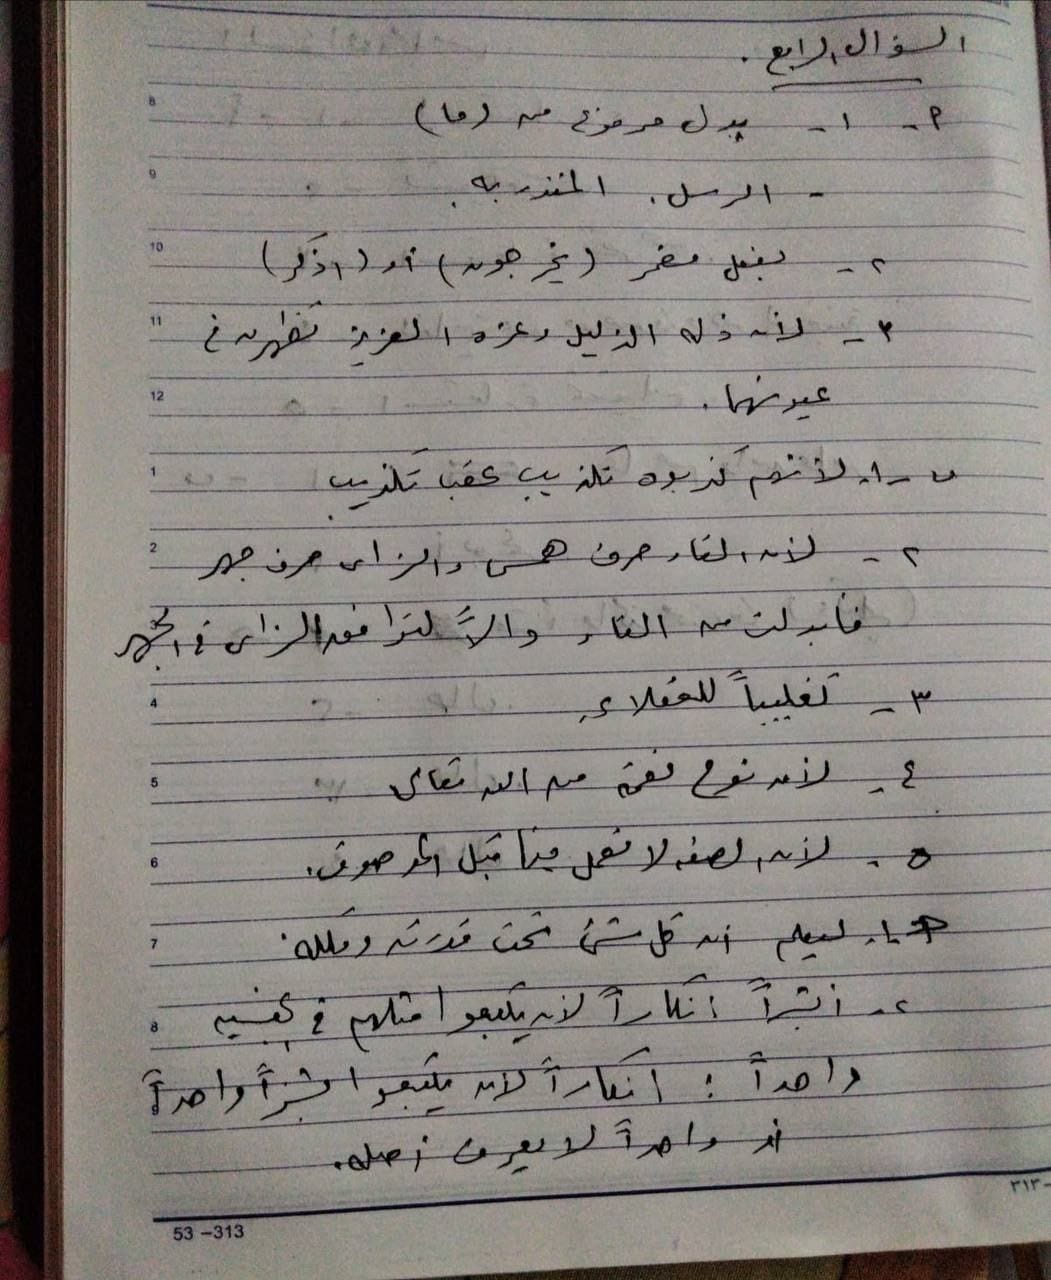 السؤال الرابع.
8
٩- ١- بدل مرفوع من (ما)
9
- الرسل. المنذر به.
10
٢- بفعل مضمر (يخرجون) أو (اذكر)
11
٣- لأن ذلة الذليل وعزة العزيز تظهران في
12
عيونهما.
1
ب- ١. لأنهم كذبوه تكذيب عقب تكذيب
2
٢- لأن التاء حرف همس والزاي حرف جهر
فأبدلت من التاء دالاً لتوافق الزاي في الجهر
4
٣- تغليباً للعقلاء.
5
٤- لأن نوح نعمة من الله تعالى
6
٥- لأن الصفة لا تعمل فيما قبل الموصوف.
7
ج- ١. ليعلم أن كل شيء تحت قدرته وملكه.
8
٢- أبشراً إنكاراً لأن يتبعوا مثلهم في الجنسية
واحداً: إنكاراً لأن يتبعوا بشراً واحداً
أو واحداً لا يعرف أصله.
٣١٣-
53 –313